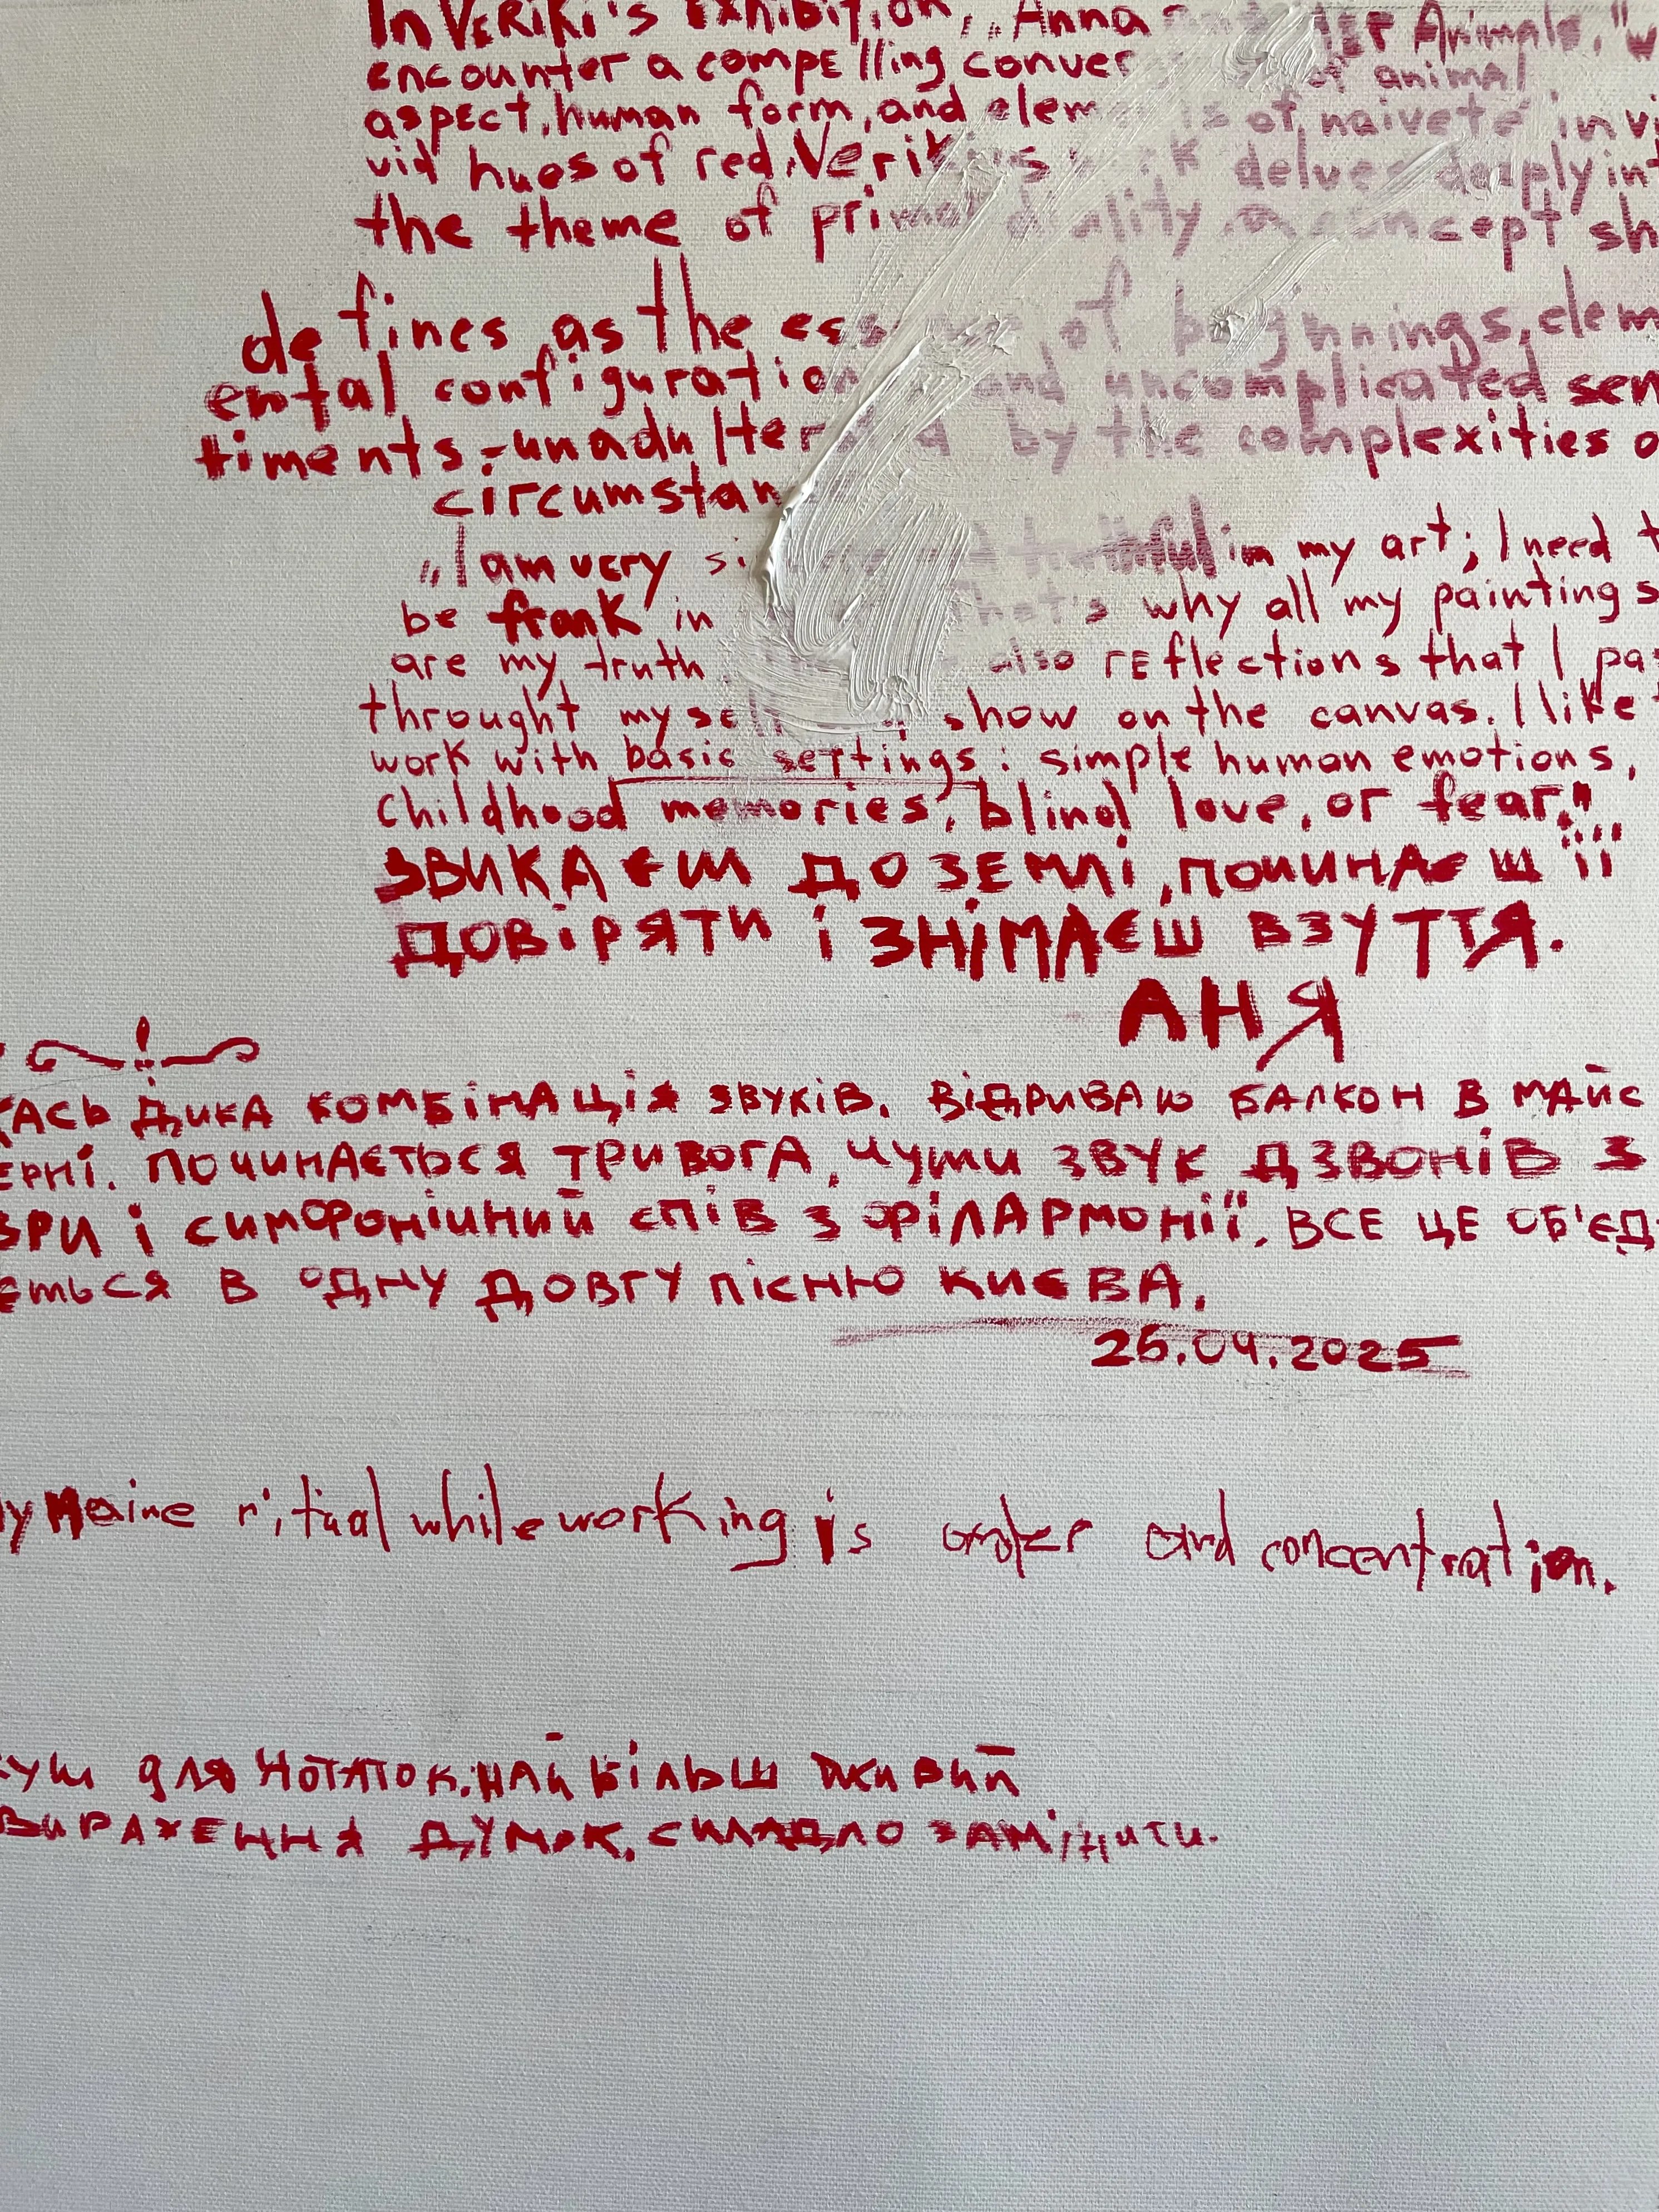 In VERiKi's EXHIBITION, „Anna and HER Animals," w
encounter a compelling conver of animal
aspect, human form, and elements of naiveté in vi
vid hues of red. Veriki's work delves deeply int
the theme of primal duality, a concept sh
defines as the essence of beginnings, elem
ental configuration and uncomplicated sen
timents,-unadulterated by the complexities o
circumstan
„I am very si truthful in my art; I need t
be frank in that's why all my paintings
are my truth also REflections that I pa
throught myself show on the canvas. I like
work with basic settings: simple human emotions,
childhood memories, blind love, or fear."
ЗВИКАЄШ ДО ЗЕМЛІ, ПОЧИНАЄШ ЇЇ
ДОВІРЯТИ І ЗНІМАЄШ ВЗУТТЯ.
АНЯ
КАСЬ ДИКА КОМБІНАЦІЯ ЗВУКІВ. ВІДРИВАЮ БАЛКОН В МАЙС
ЕРНІ. ПОЧИНАЄТЬСЯ ТРИВОГА, ЧУТИ ЗВУК ДЗВОНІВ З
ВРИ І СИМФОНІЧНИЙ СПІВ З ФІЛАРМОНІЇ. ВСЕ ЦЕ ОБ'ЄД
ЄТЬСЯ В ОДНУ ДОВГУ ПІСНЮ КИЄВА.
25.04.2025
My maine ritual while working is order and concentration.
куш для нотаток. найбільш живий
вираження думок. складло замінити.